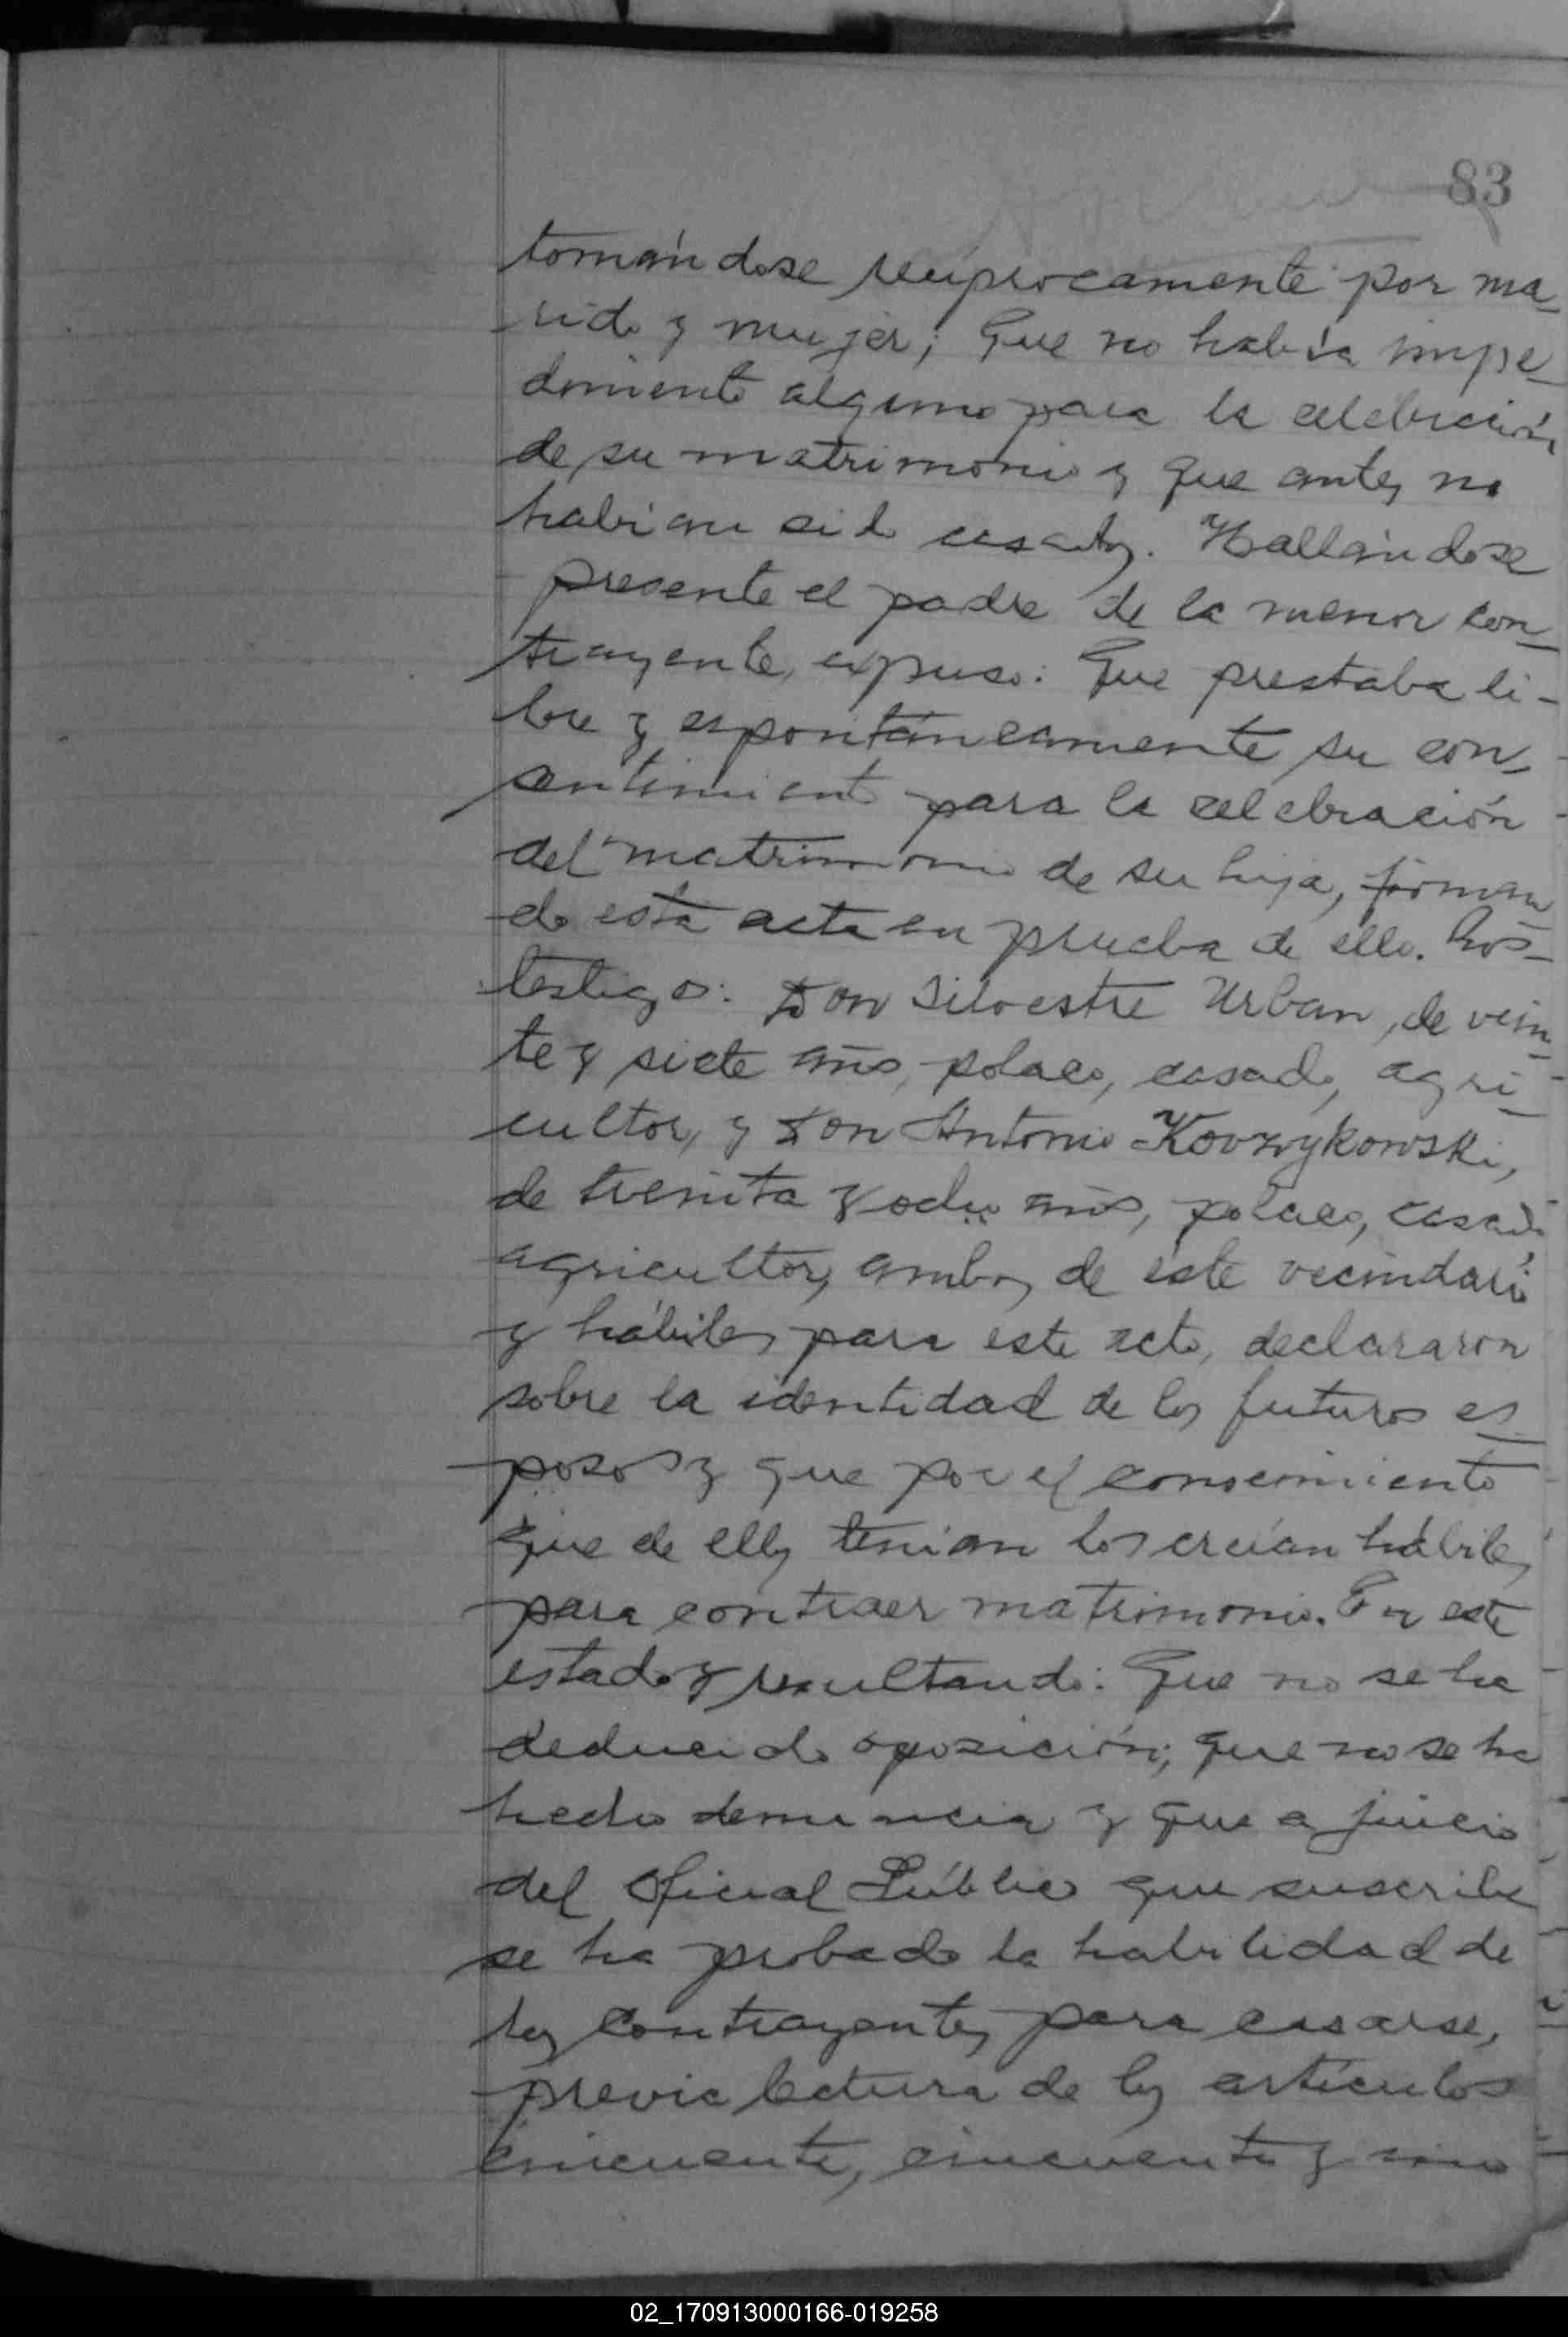 83
tomándose recíprocamente por ma_
rido y mujer; Que no había impe_
dimento alguno para la celebración
de su matrimonio y que antes no
habían sido casados. Hallándose
presente el padre de la menor con_
trayente, expuso: Que prestaba li-
bre y espontáneamente su con_
sentimiento para la celebración
del matrimonio de su hija, firman
do esta acta en prueba de ello. Los_
testigos: Don Silvestre Urban, de vein_
te y siete años, polaco, casado, agri_
cultor, y Don Antonio Kovzykowski,
de treinta y ocho años, polaco, casado
agricultor, ambos de este vecindario
y hábiles para este acto, declararon
sobre la identidad de los futuros es_
posos y que por el conocimiento
que de ellos tenían los creían hábiles
para contraer matrimonio. En este
estado y resultando: Que no se ha
deducido oposición; que no se ha
hecho denuncia y que a juicio
del Oficial Público que suscribe
se ha probado la habilidad de
los contrayentes para casarse,
previa lectura de los artículos
cincuenta, cincuenta y uno
02_170913000166-019258